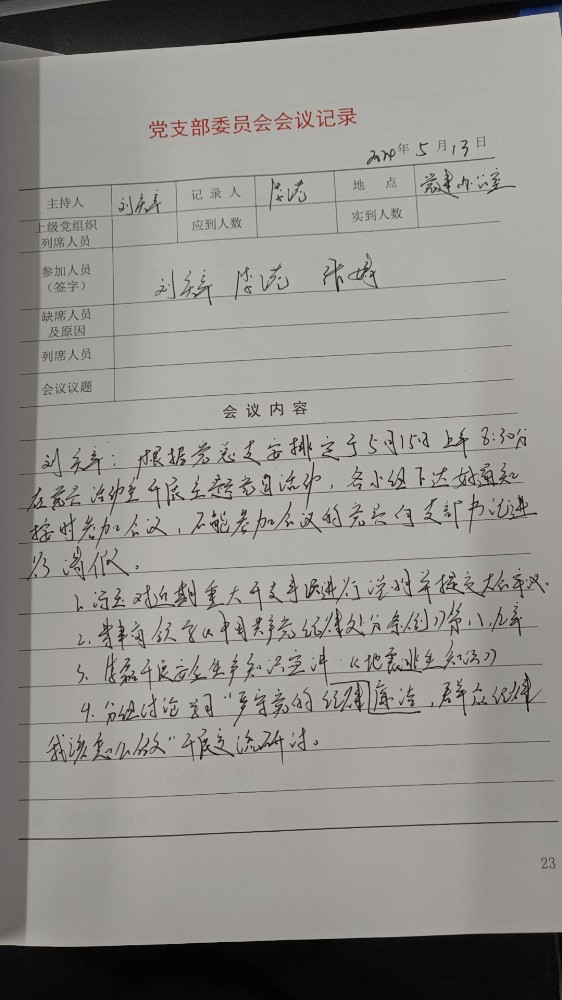 党支部委员会会议记录
2024年5月13日
主持人 刘庆 记录人 地点 党建办公室
上级党组织列席人员 应到人数 实到人数
参加人员（签字） 刘庆 张
缺席人员及原因
列席人员
会议议题
会议内容
刘庆：根据党总支安排定于5月15日上午8:30分
在党员活动室开展主题党日活动，各小组下达好通知
按时参加会议，不能参加会议的党员向支部书记进
行请假。
1. 对近期重大开支事项进行说明并提交大会审议。
2. 领学《中国共产党纪律处分条例》第八、九章
3. 开展安全生产知识宣讲：《地震逃生知识》
4. 分组讨论学习“严守党的纪律廉洁，群众纪律
我该怎么做”开展交流研讨。
23